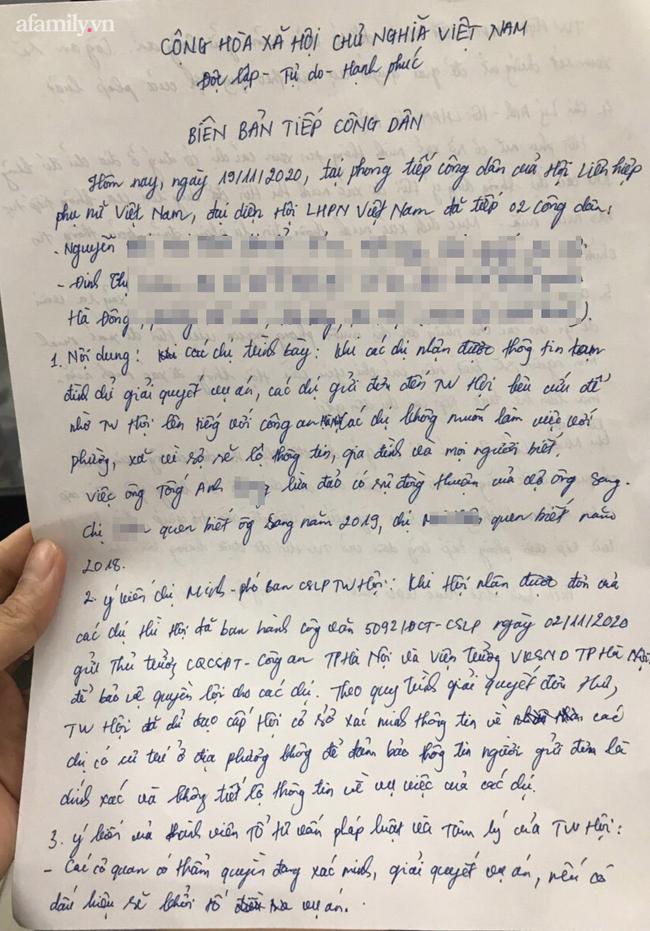 afamily.vn
CỘNG HÒA XÃ HỘI CHỦ NGHĨA VIỆT NAM
Độc lập - Tự do - Hạnh phúc
BIÊN BẢN TIẾP CÔNG DÂN
Hôm nay, ngày 19/11/2020, tại phòng tiếp công dân của Hội Liên hiệp
phụ nữ Việt Nam, đại diện Hội LHPN Việt Nam đã tiếp 02 công dân:
- Nguyễn
- Đinh Thị
Hà Đông
1. Nội dung: Khi các chị trình bày: Khi các chị nhận được thông tin tạm
đình chỉ giải quyết vụ án, các chị gửi đơn đến TW Hội kêu cứu để
nhờ TW Hội lên tiếng với công an các chị không muốn làm việc với
phường, xã vì sợ sẽ lộ thông tin, gia đình và mọi người biết.
Việc ông Tống Anh lừa đảo có sự đồng thuận của vợ ông Sang.
Chị quen biết ông Sang năm 2019, chị quen biết năm
2018.
2. Ý kiến chị Minh - phó ban CSLP TW Hội: Khi Hội nhận được đơn của
các chị thì Hội đã ban hành công văn 5092/ĐCT-CSLP ngày 02/11/2020
gửi Thủ trưởng CQCSĐT - Công an TP Hà Nội và Viện trưởng VKSND TP Hà Nội
để bảo vệ quyền lợi cho các chị. Theo quy trình giải quyết đơn thư,
TW Hội đã chỉ đạo cấp Hội cơ sở xác minh thông tin về các
chị có cư trú ở địa phương không để đảm bảo thông tin người gửi đơn là
chính xác và không tiết lộ thông tin về vụ việc của các chị.
3. Ý kiến của thành viên Tổ tư vấn pháp luật và Tâm lý của TW Hội:
- Các cơ quan có thẩm quyền đang xác minh, giải quyết vụ án, nếu có
dấu hiệu sẽ khởi tố vụ án.